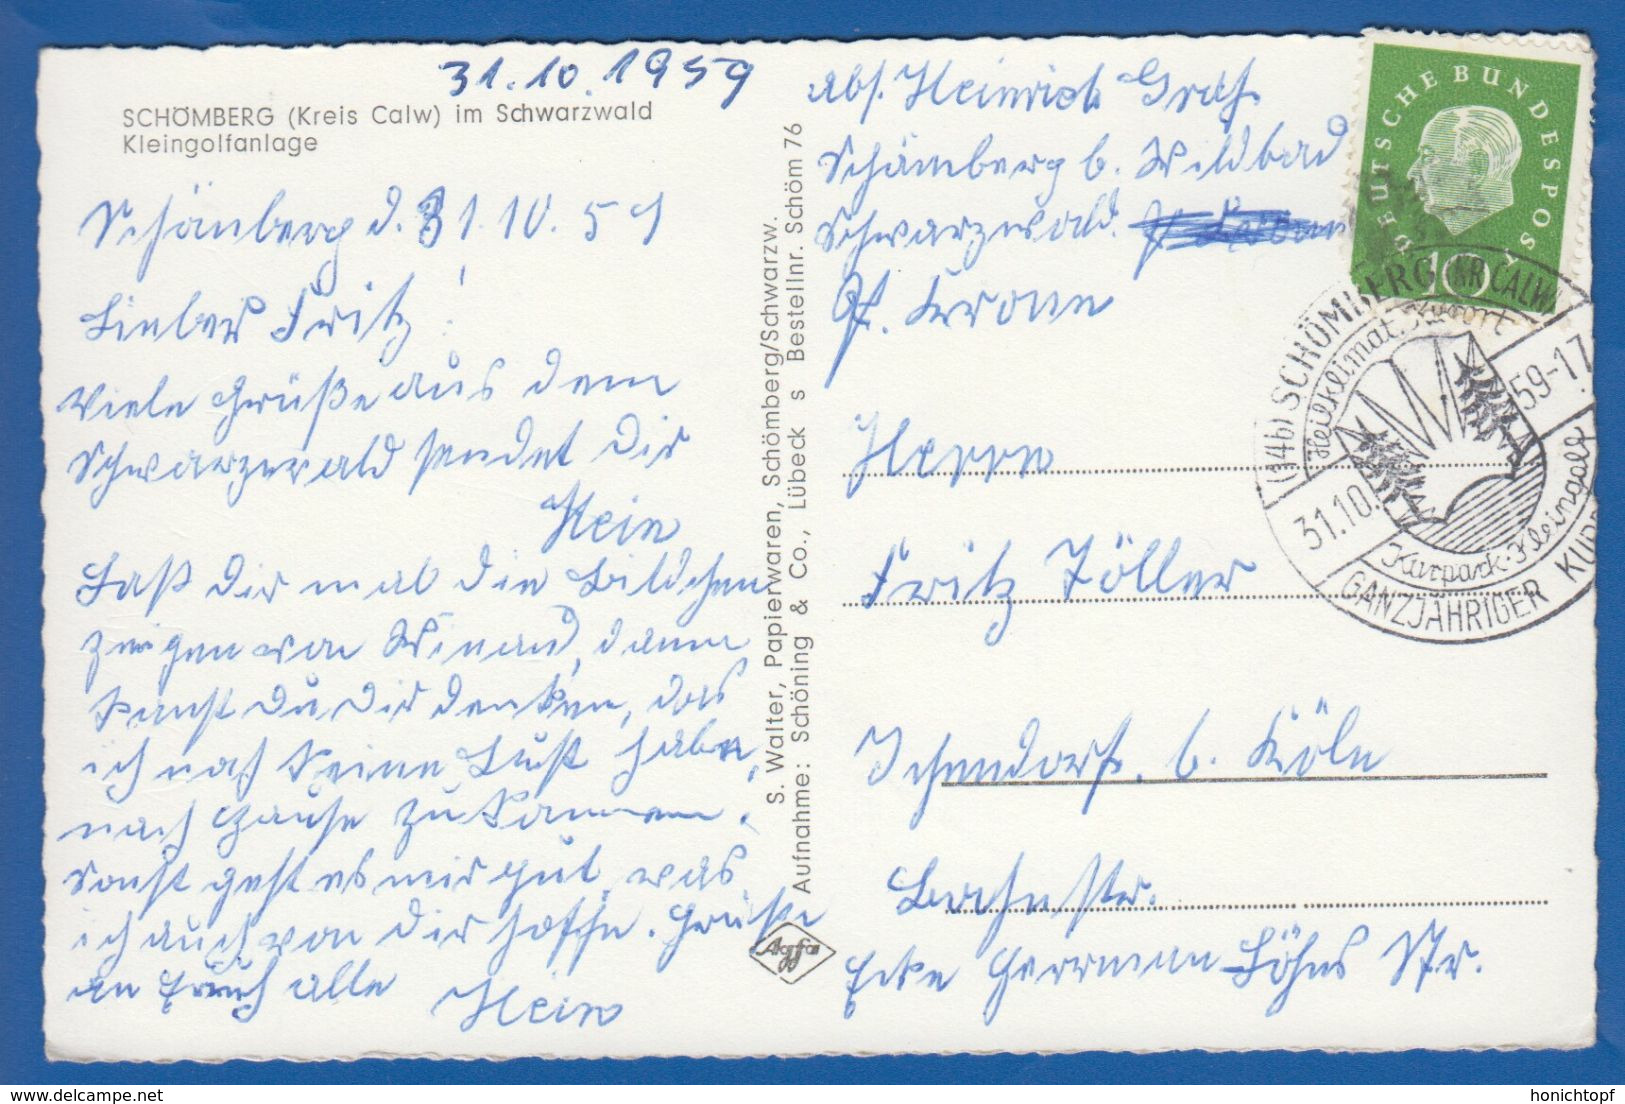 31.10.1959
SCHÖMBERG (Kreis Calw) im Schwarzwald
Kleingolfanlage
Schömberg d. 31.10.59
Lieber Fritz!
Viele Grüße aus dem
Schwarzwald sendet Dir
Hein
Laß Dir mal die Bildchen
zeigen von Winand, dann
kanst Du Dir denken, das
ich noch keine Lust habe,
nach Hause zu kommen.
Sonst geht es mir gut, was
ich auch von Dir hoffe. Grüße
an Euch alle
Hein
S. Walter, Papierwaren, Schömberg/Schwarzw.
Aufnahme: Schöning & Co., Lübeck s Bestellnr. Schöm 76
Agfa
Abs. Heinrich Graf
Schömberg b. Wildbad
Schwarzwald.
Gf. Krone
Herrn
Fritz Töller
Ichendorf. b. Köln
Bachstr.
Ecke Herrman Löhns Str.
DEUTSCHE BUNDESPOST
10
(14b) SCHÖMBERG (KR CALW)
Heilklimat. Kurort
31.10.59-17
Kurpark-Kleingolf
GANZJÄHRIGER KUR
delcampe.net
honichtopf